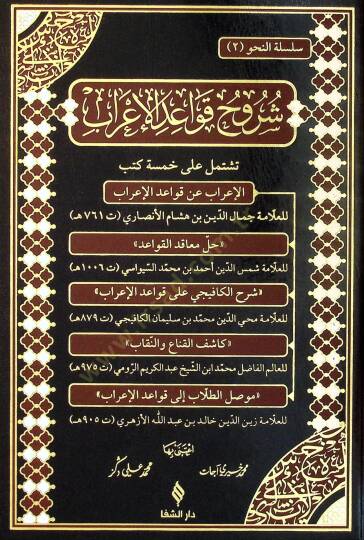 سلسلة النحو (٢)
شُرُوحُ قَوَاعِدِ الإِعْرَابِ
تشتمل على خمسة كتب
الإعراب عن قواعد الإعراب
للعلامة جمال الدّين بن هشام الأنصاري (ت ٧٦١ هـ)
«حلّ معاقد القواعد»
للعلامة شمس الدّين أحمد بن محمّد السّيواسي (ت ١٠٠٦ هـ)
«شرح الكافيجي على قواعد الإعراب»
للعلامة محي الدّين محمّد بن سليمان الكافيجي (ت ٨٧٩ هـ)
«كاشف القناع والنّقاب»
للعالم الفاضل محمّد ابن الشّيخ عبد الكريم الرّومي (ت ٩٧٥ هـ)
«موصل الطلّاب إلى قواعد الإعراب»
للعلامة زين الدّين خالد بن عبد اللّه الأزهري (ت ٩٠٥ هـ)
اعتنى بها
محمد خيري آجات
محمد علي دكز
دار الشفا